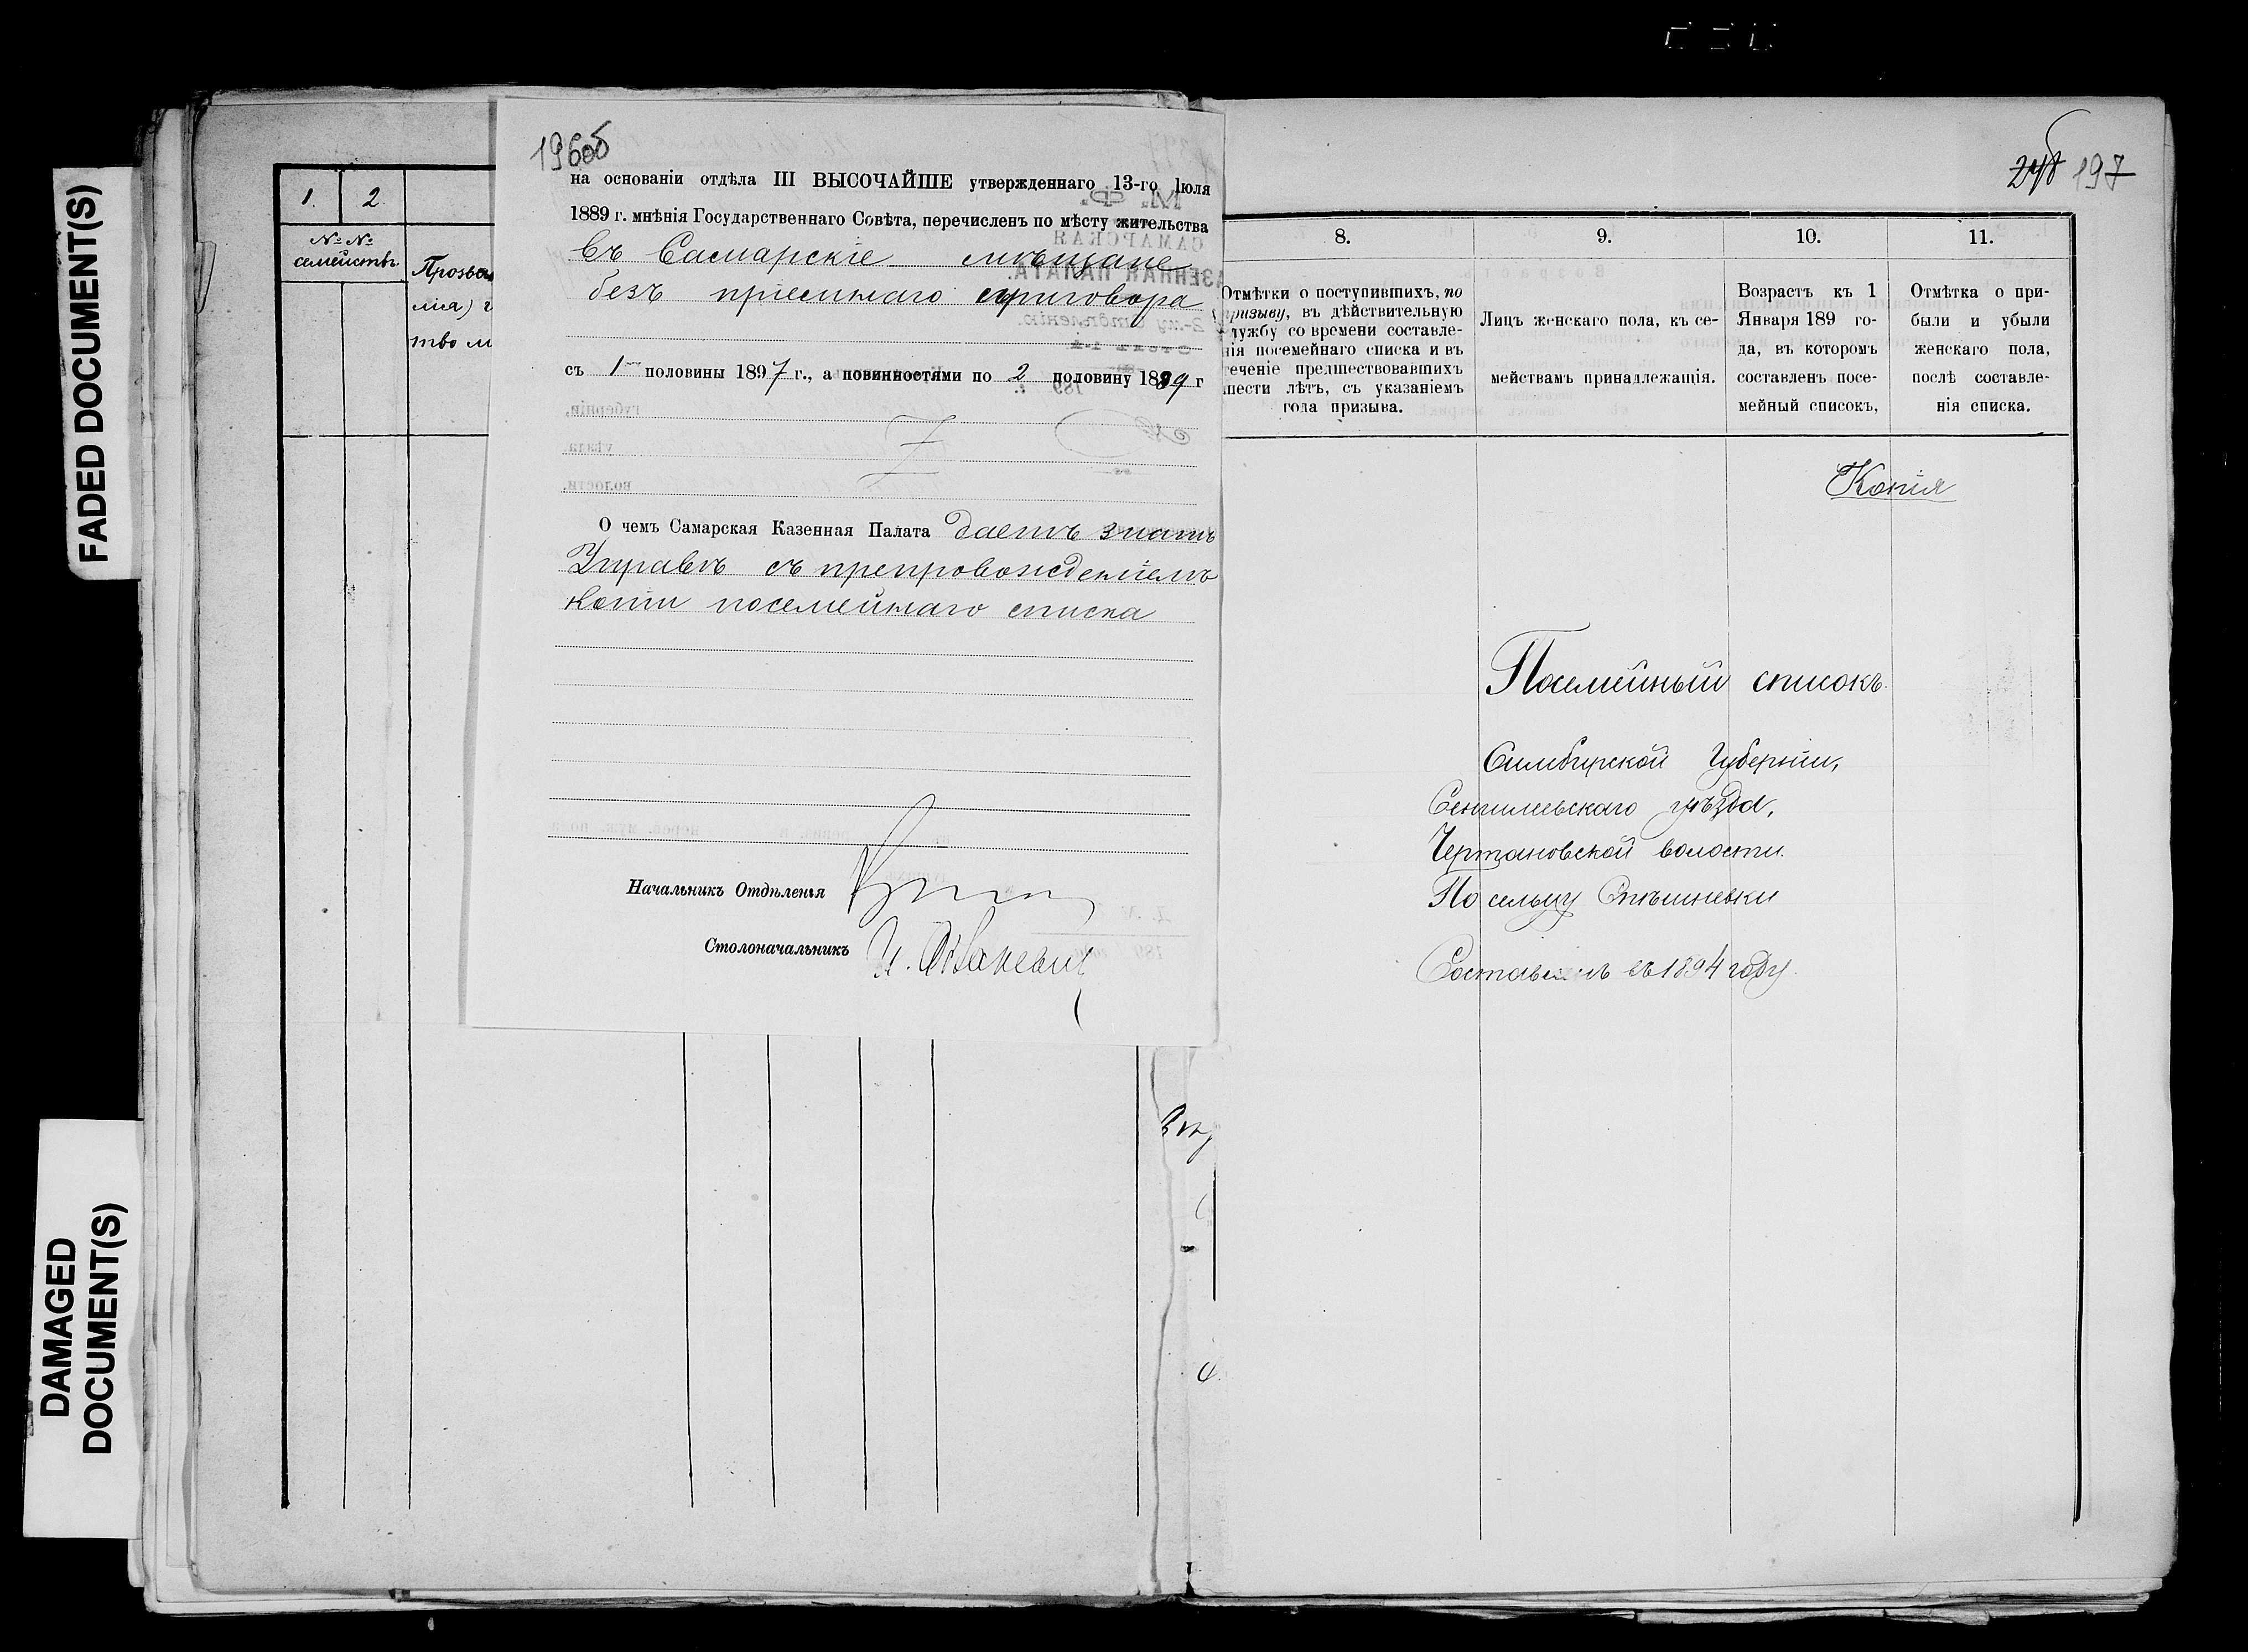 FADED DOCUMENT(S)
DAMAGED
DOCUMENT(S)
1. 2
№ №
семействъ.
196об
на основаніи отдѣла III ВЫСОЧАЙШЕ утвержденнаго 13-го Іюля
1889 г. мнѣнія Государственнаго Совѣта, перечисленъ по мѣсту жительства
въ Самарскіе мѣщане
безъ пріемнаго приговора
съ 1 половины 1897 г., а повинностями по 2 половину 1899 г
О чемъ Самарская Казенная Палата даетъ знать
Управѣ съ препровожденіемъ
копіи посемейнаго списка
Начальникъ Отдѣленія
Столоначальникъ
197
8. 9. 10. 11.
Отмѣтки о поступившихъ, по
призыву, въ дѣйствительную
службу со времени составле-
нія посемейнаго списка и въ
теченіе предшествовавшихъ
шести лѣтъ, съ указаніемъ
года призыва.
Лицъ женскаго пола, къ се-
мействамъ принадлежащія.
Возрастъ къ 1
Января 189 го-
да, въ которомъ
составленъ посе-
мейный списокъ,
Отмѣтка о при-
были и убыли
женскаго пола,
послѣ составле-
нія списка.
Копія
Посемейный списокъ
Симбирской Губерніи,
Сенгилеевскаго уѣзда,
Чертановской волости.
По сельцу Спѣшневки
Составленъ въ 1894 году.